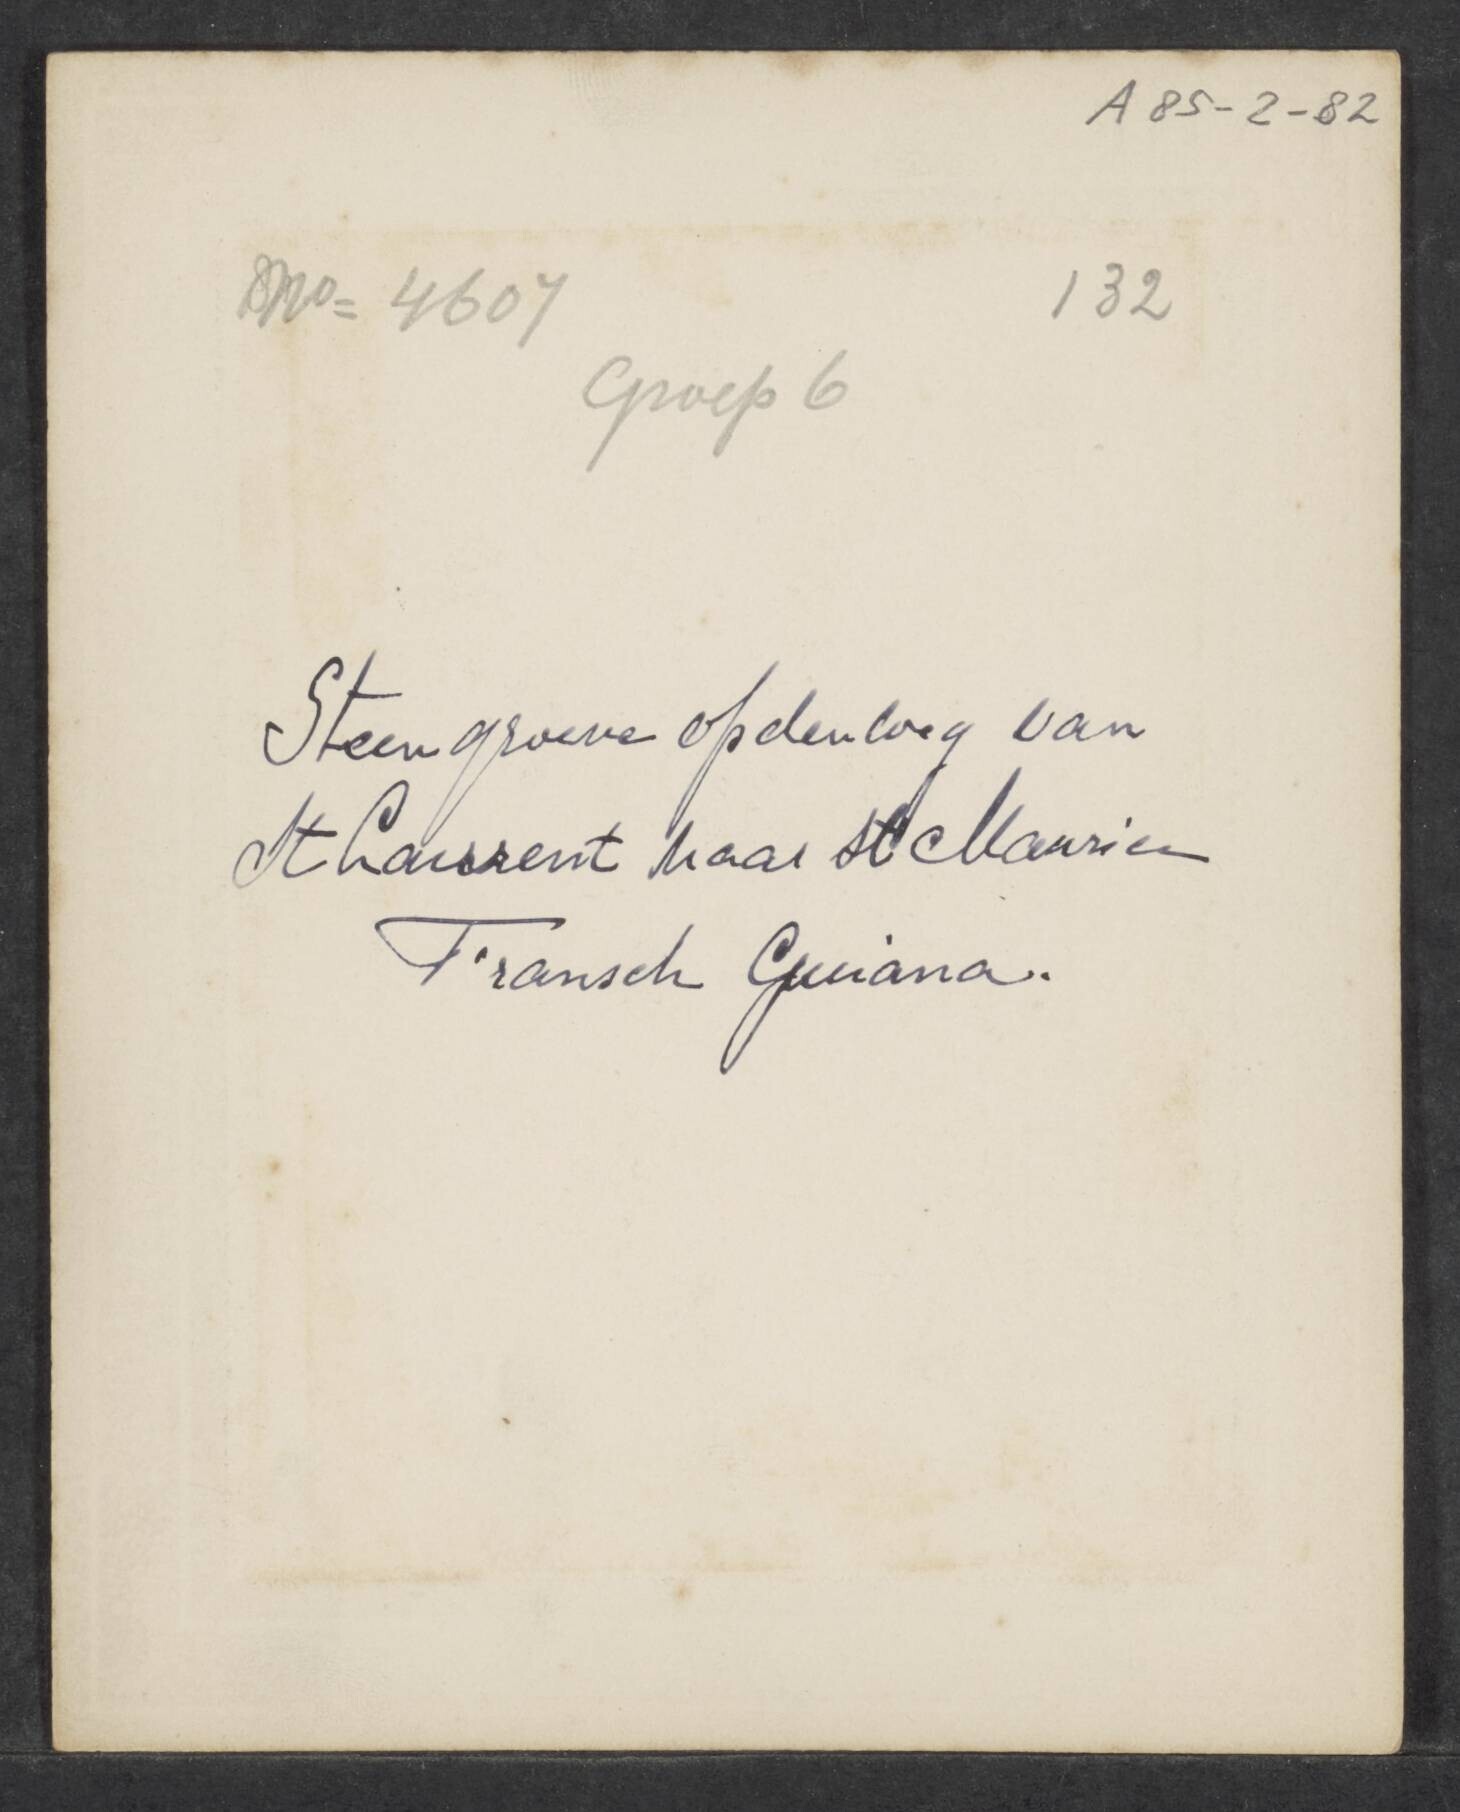 A 85-2-82
No= 4607
132
Groep 6
Steengroeve op den weg van
St Laurent naar St Maurice
Fransch Guiana.